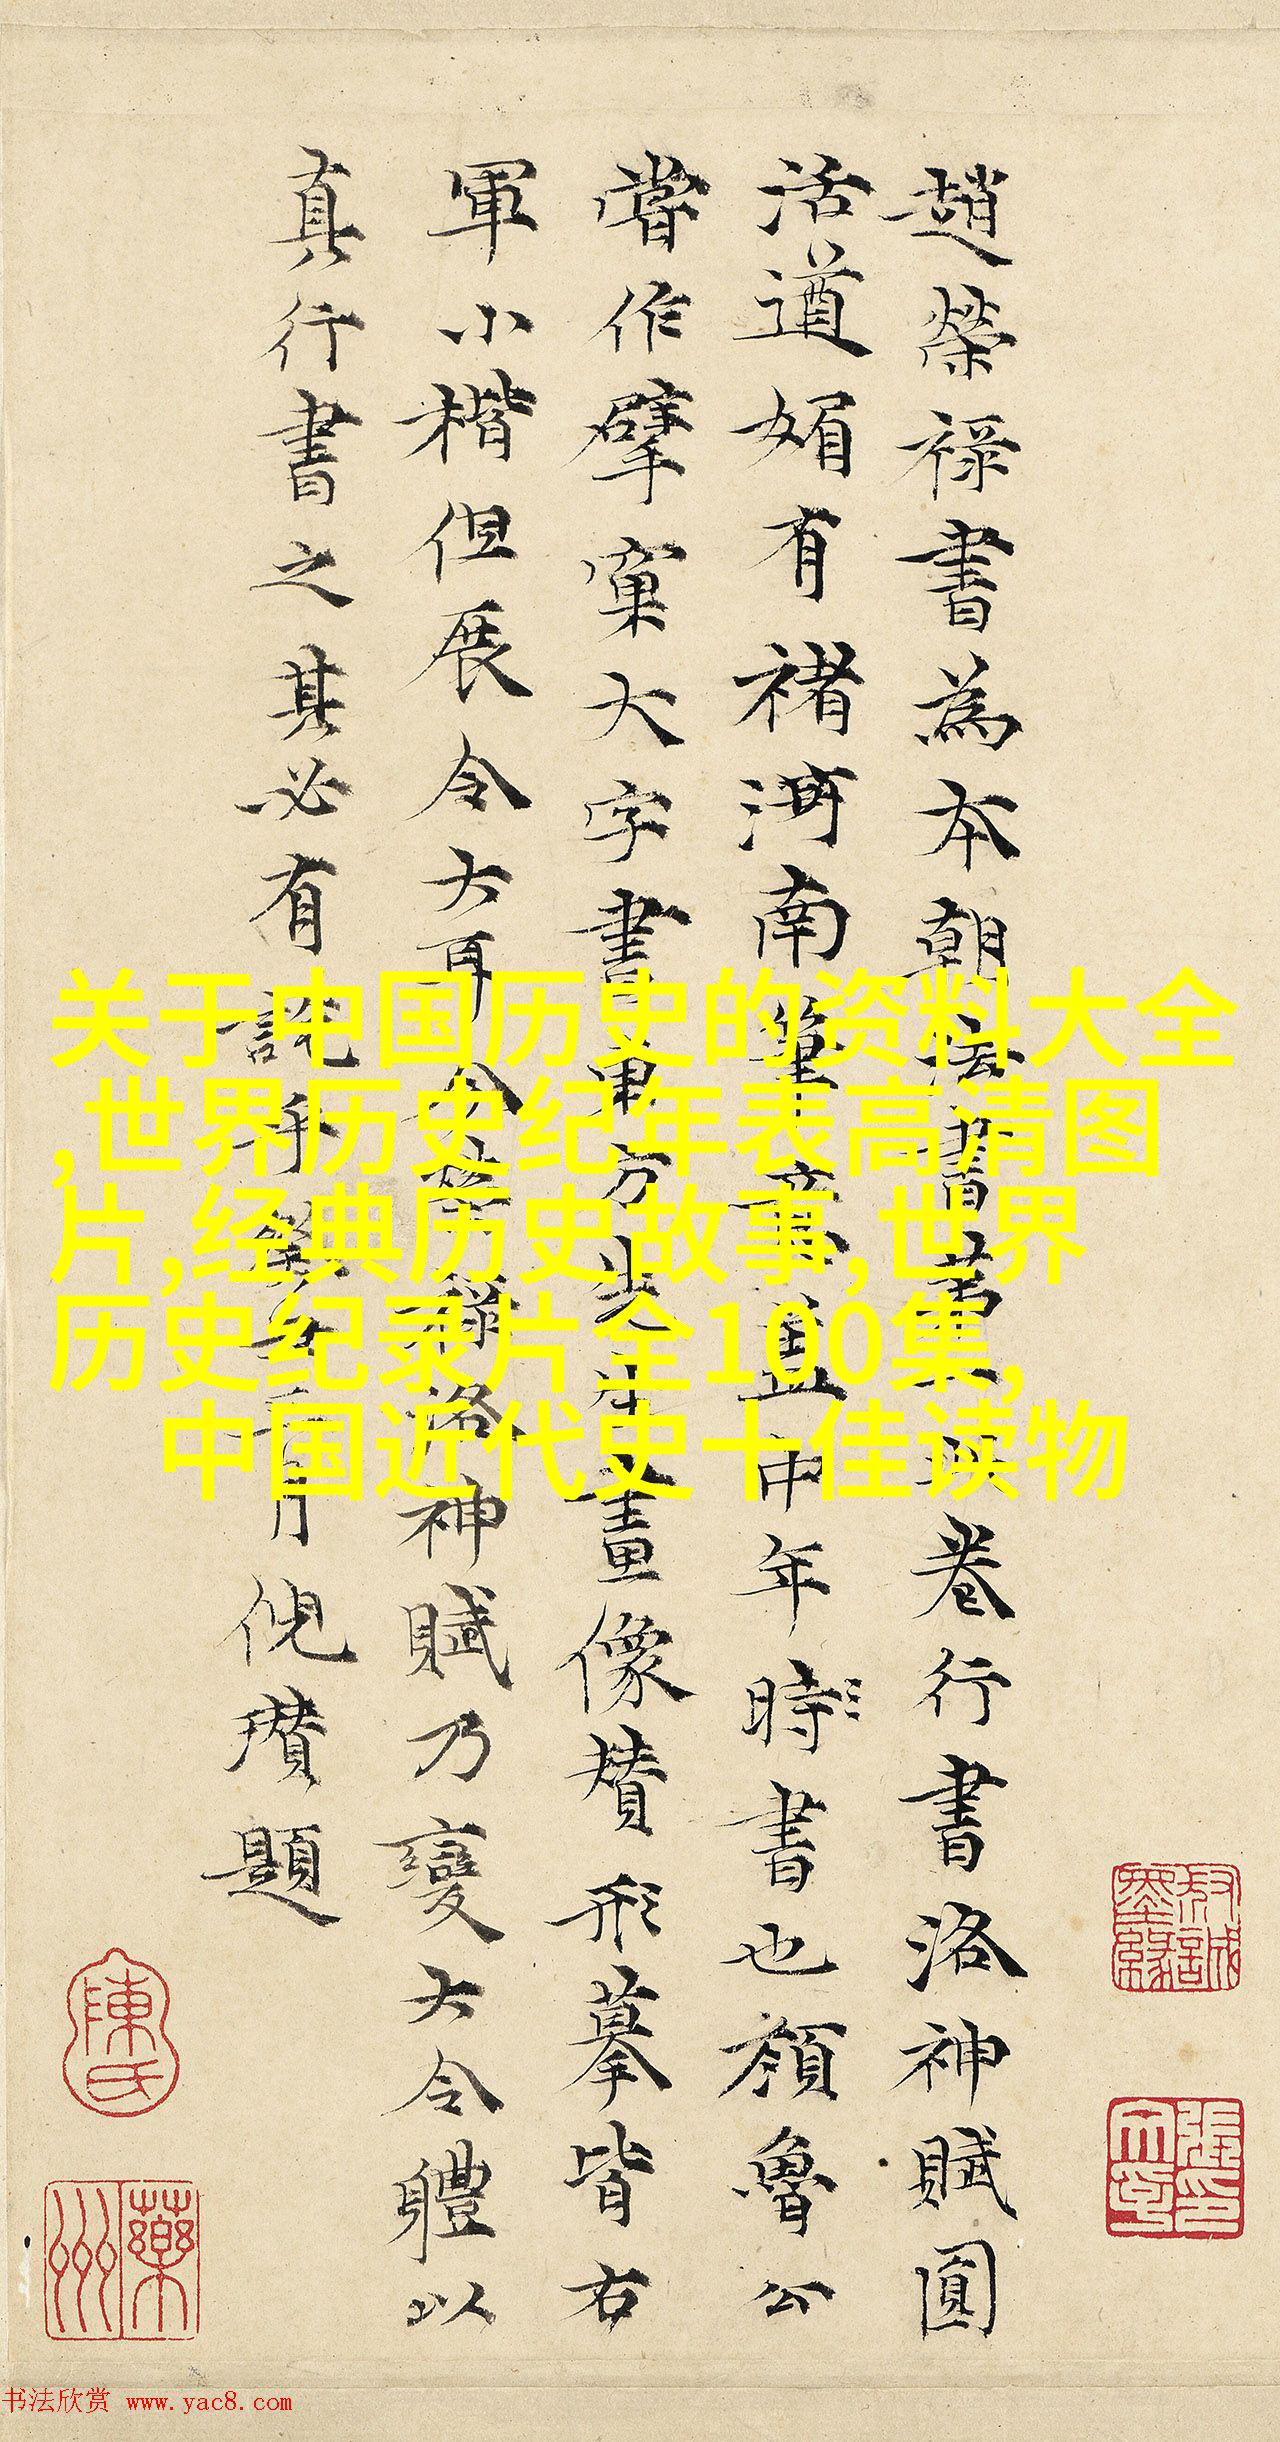 趙榮祿書為本朝法書第一此卷行書洛神賦圓
活遒媚有褚河南筆意蓋中年時書也顏魯公
嘗作擘窠大字書東方朔先生畫像贊形摹皆右
軍小楷但展令大耳今榮祿洛神賦乃變大令體以
真行書之其必有說乎月倪瓚題
陳氏
藥洲
关于中国历史的资料大全
,世界历史纪年表高清图
片,经典历史故事,世界
历史纪录片全100集,
中国近代史十佳读物
书法欣赏 www.yac8.com